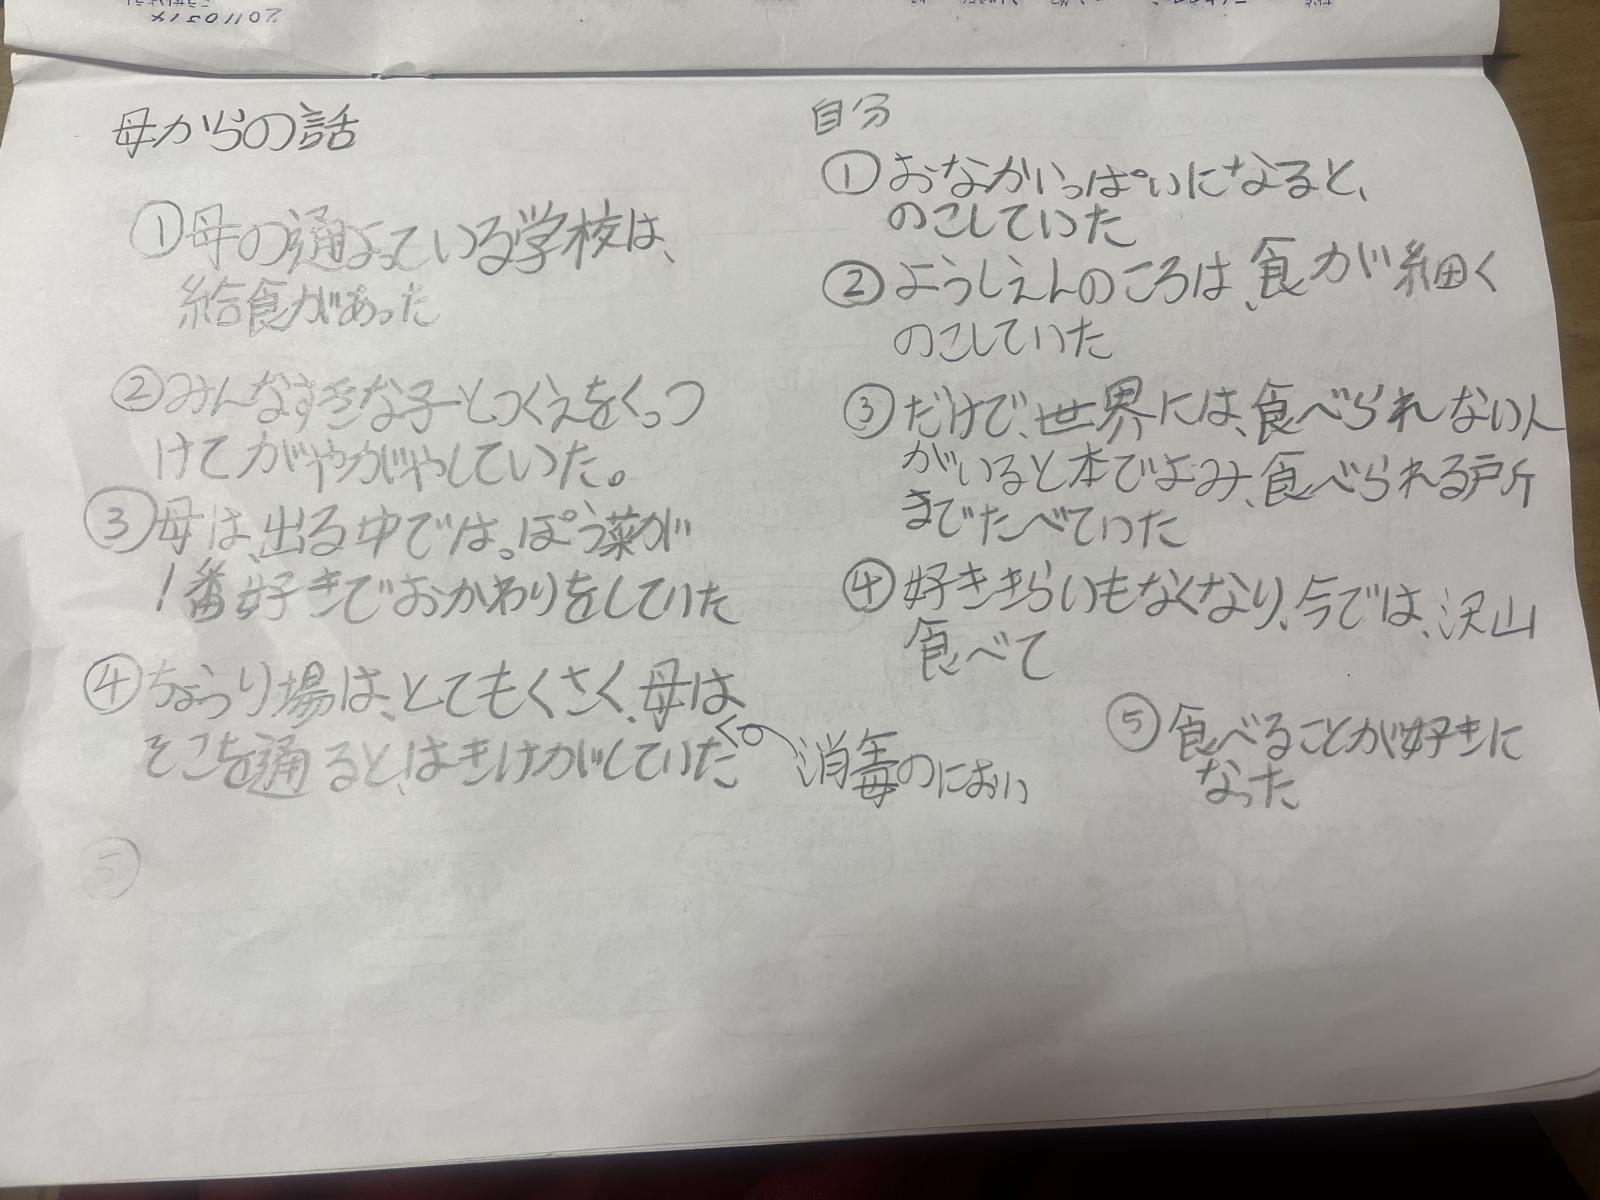 2011051X
母からの話
①母の通よっている学校は、
給食があった
②みんなすきな子とつくえをくっつ
けてがやがやしていた。
③母は、出る中では。ぽう菜が
1番好きでおかわりをしていた
④ちょうり場は、とてもくさく、母は
そこを通ると、はきけがしていた
消毒のにおい
⑤
自分
①おなかいっぱいになると、
のこしていた
②ようしえんのころは、食が細く
のこしていた
③だけで、世界には、食べられない人
がいると本でよみ、食べられる所
までたべていった
④好ききらいもなくなり、今では、沢山
食べて
⑤食べることが好きに
なった